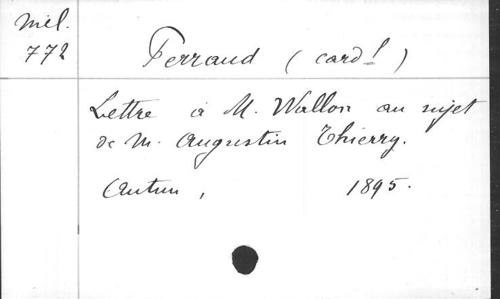 Mél.
772
Perraud (card!)
Lettre à M. Wallon au sujet
de M. Augustin Thierry.
Autun, 1895.